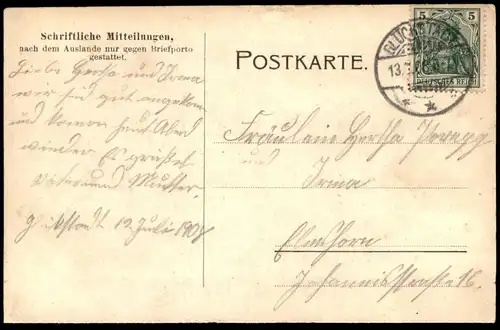 Schriftliche Mitteilungen,
nach dem Auslande nur gegen Briefporto
gestattet.
POSTKARTE.
5 5
DEUTSCHES REICH
GLÜCKSTADT
13.7.
Liebe Hertha und Irma
wir sind gut angekom
und kommen heut Abend
wieder Es grüßet
Vater und Mutter.
Glückstadt 12 Juli 190
Fräulein Hertha
und
Irma
Elmshorn
Johannisstrasse 16.